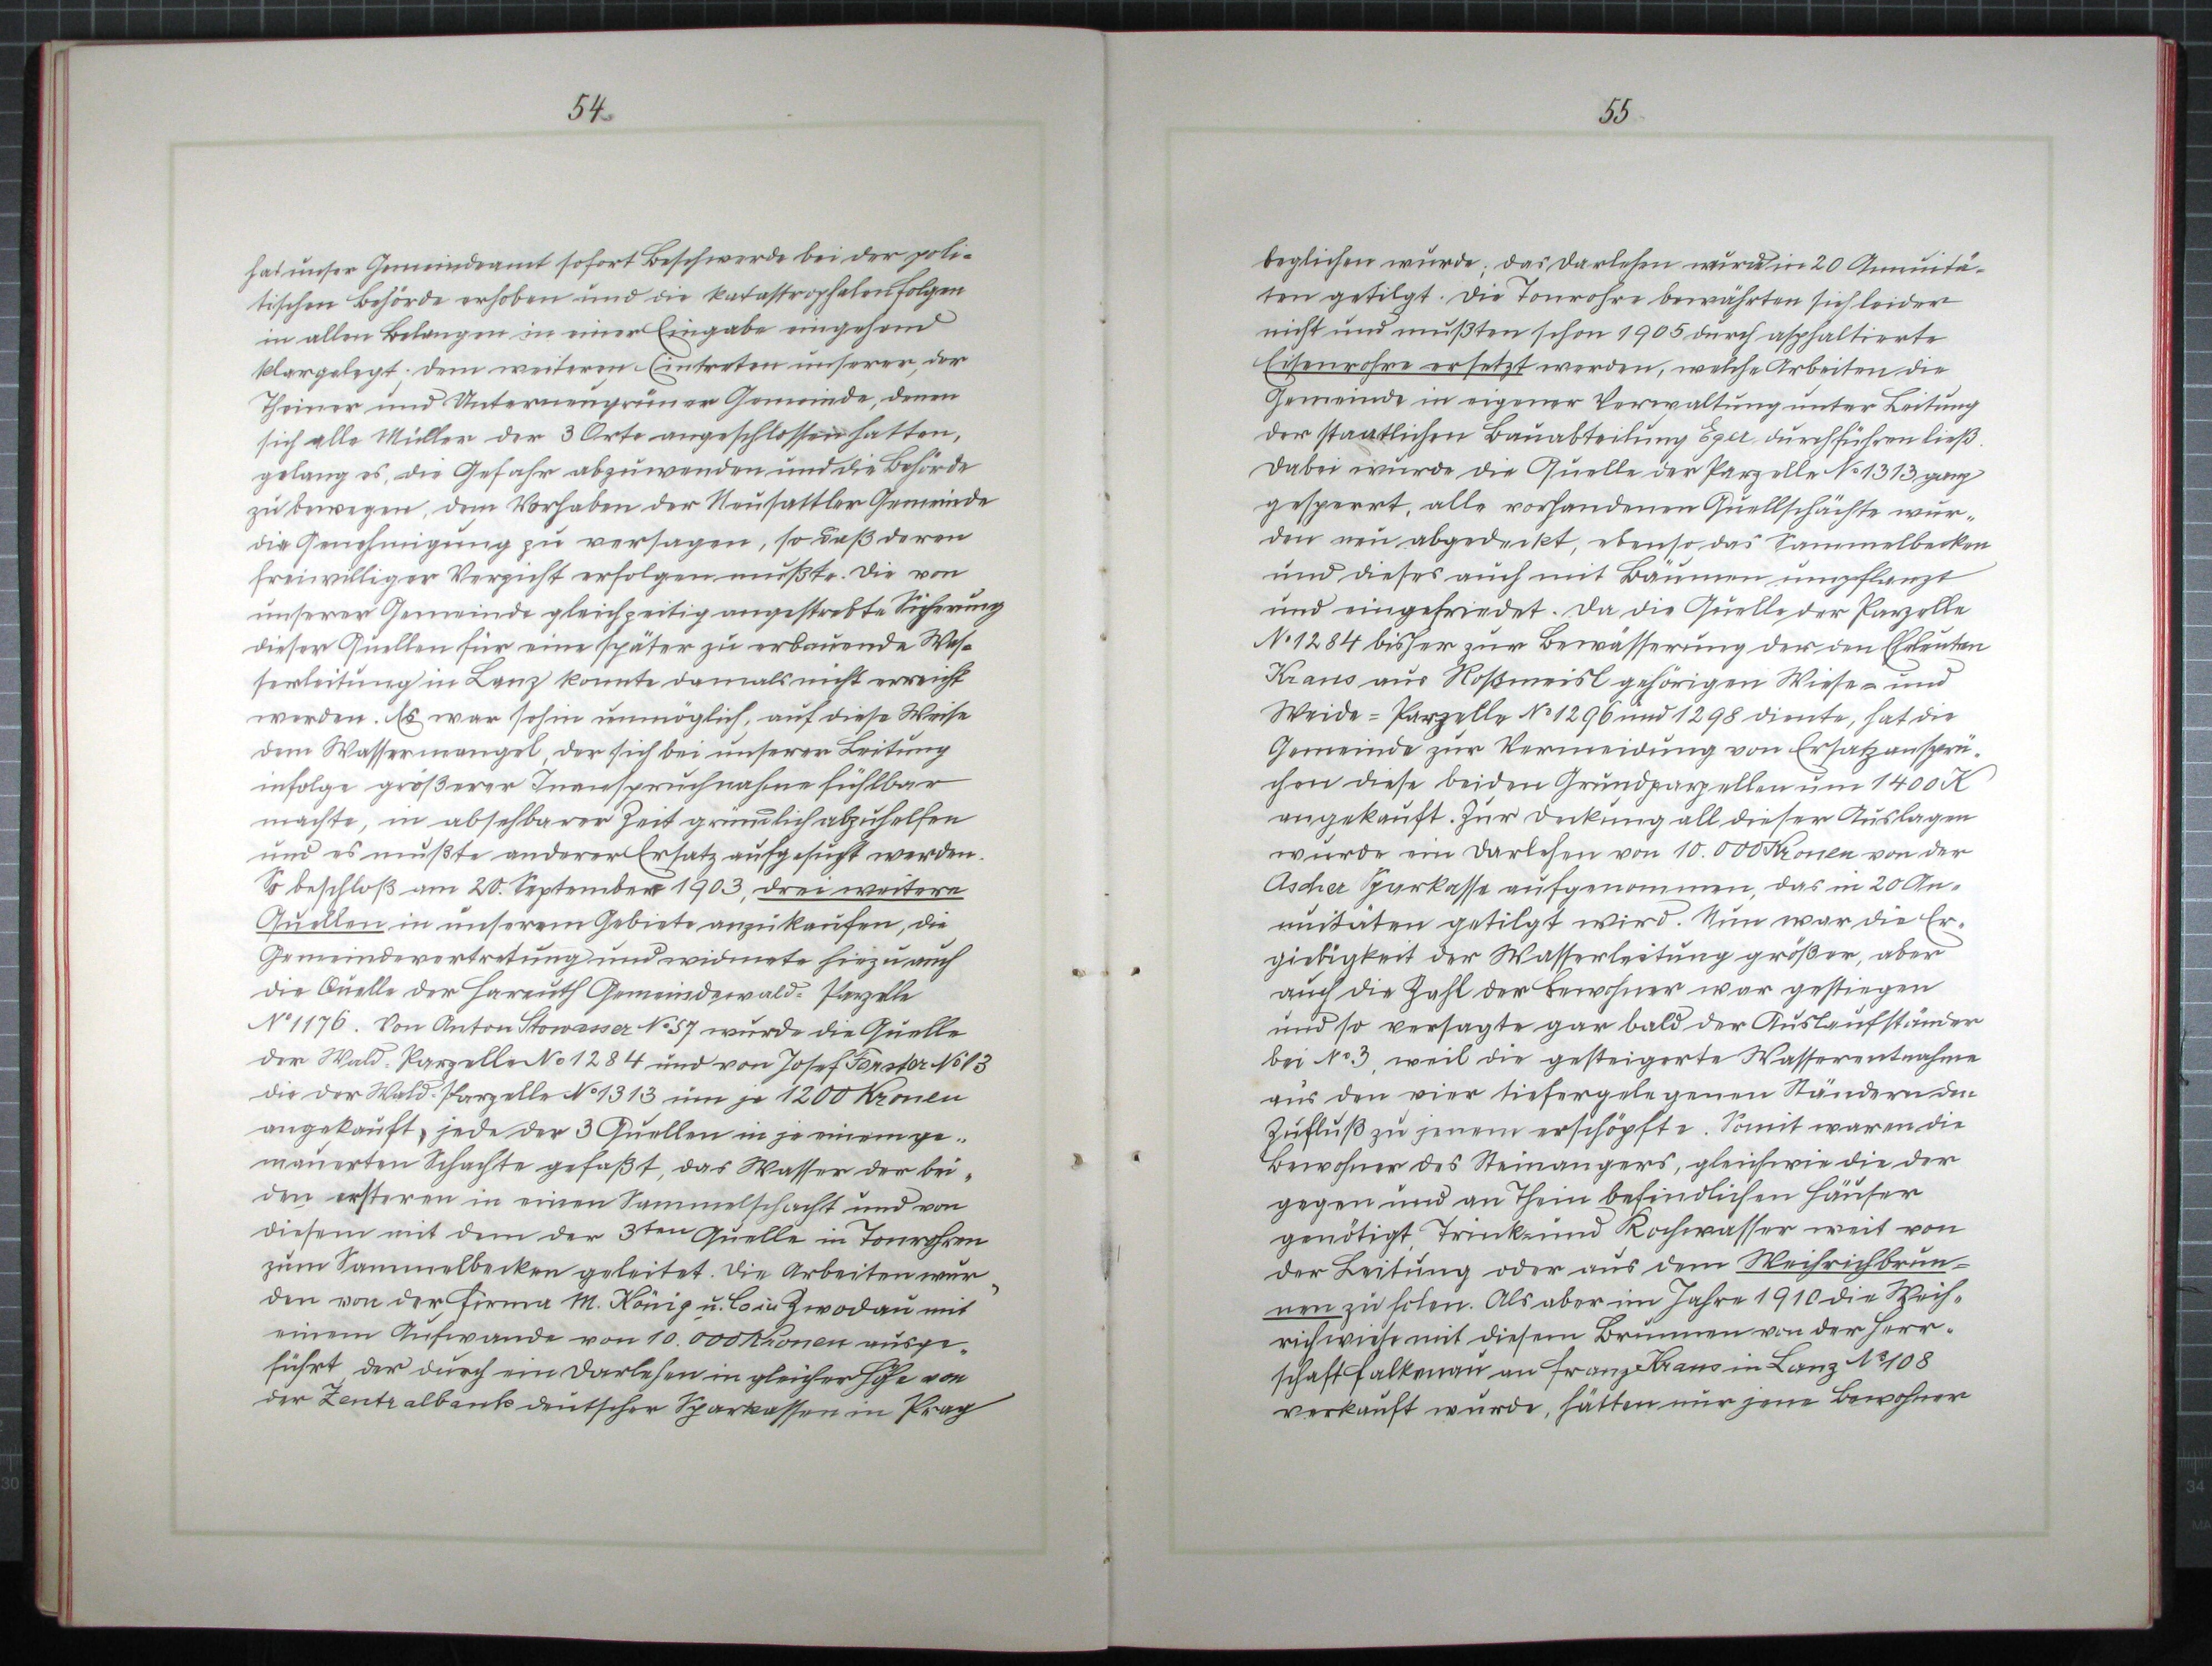 54.
hat unser Gemeindeamt sofort Beschwerde bei der poli-
tischen Behörde erhoben und die katastrophalen Folgen
in allen Belangen in einer Eingabe eingehend
klargelegt; dem weiteren Eintreten unserer, der
Theiner und Unterneugrüner Gemeinde, denen
sich alle Müller der 3 Orte angeschlossen hatten,
gelang es, die Gefahr abzuwenden und die Behörde
zu bewegen, dem Vorhaben der Neusattler Gemeinde
die Genehmigung zu versagen, so daß deren
freiwilliger Verzicht erfolgen mußte. Die von
unserer Gemeinde gleichzeitig angestrebte Sicherung
dieser Quellen für eine später zu erbauende Was-
serleitung in Lanz konnte damals nicht erreicht
werden. Es war sohin unmöglich, auf diese Weise
dem Wassermangel, der sich bei unserer Leitung
infolge größerer Inanspruchnahme fühlbar
machte, in absehbarer Zeit gründlich abzuhelfen
und es mußte anderer Ersatz aufgesucht werden.
So beschloß am 20. September 1903, drei weitere
Quellen in unserem Gebiete anzukaufen, die
Gemeindevertretung und widmete hiezu auch
die Quelle der Hareuth Gemeindewald-Parzelle
No 1176. Von Anton Stowasser No 57 wurde die Quelle
der Wald-Parzelle No 1284 und von Josef Forster No 13
die der Wald-Parzelle No 1313 um je 1200 Kronen
angekauft, jede der 3 Quellen in je einem ge-
mauerten Schachte gefaßt, das Wasser der bei-
den ersteren in einen Sammelschacht und von
diesem mit dem der 3ten Quelle in Tonrohren
zum Sammelbecken geleitet. Die Arbeiten wur-
den von der Firma M. König u. Co in Zwodau mit
einem Aufwande von 10.000 Kronen ausge-
führt, der durch ein Darlehen in gleicher Höhe von
der Zentralbank deutscher Sparkassen in Prag
55
beglichen wurde; das Darlehen wird in 20 Annuitä-
ten getilgt. Die Tonrohre bewährten sich leider
nicht und mußten schon 1905 durch asphaltierte
Eisenrohre ersetzt werden, welche Arbeiten die
Gemeinde in eigener Verwaltung unter Leitung
der staatlichen Bauabteilung Eger durchführen ließ.
Dabei wurde die Quelle der Parzelle No 1313 ganz
gesperrt, alle vorhandenen Quellschächte wur-
den neu abgedeckt, ebenso das Sammelbecken
und dieses auch mit Bäumen umpflanzt
und eingefriedet. Da die Quelle der Parzelle
No 1284 bisher zur Bewässerung der den Eheleuten
Kraus aus Roßmeisl gehörigen Wiese- und
Weide-Parzelle No 1296 und 1298 diente, hat die
Gemeinde zur Vermeidung von Ersatzansprü-
chen diese beiden Grundparzellen um 1400 K
angekauft. Zur Deckung all dieser Auslagen
wurde ein Darlehen von 10.000 Kronen von der
Ascher Sparkasse aufgenommen, das in 20 An-
nuitäten getilgt wird. Nun war die Er-
giebigkeit der Wasserleitung größer, aber
auch die Zahl der Bewohner war gestiegen
und so versagte gar bald der Auslaufständer
bei No 3, weil die gesteigerte Wasserentnahme
aus den vier tiefergelegenen Ständern den
Zufluß zu jenem erschöpfte. Somit waren die
Bewohner des Steinangers, gleichwie die der
gegen und an Thein befindlichen Häuser
genötigt, Trink- und Kochwasser weit von
der Leitung oder aus dem Weihrichbrun-
nen zu holen. Als aber im Jahre 1910 die Weih-
richwiese mit diesem Brunnen von der Herr-
schaft Falkenau an Franz Kraus in Lanz No 108
verkauft wurde, hätten nur jene Bewohner